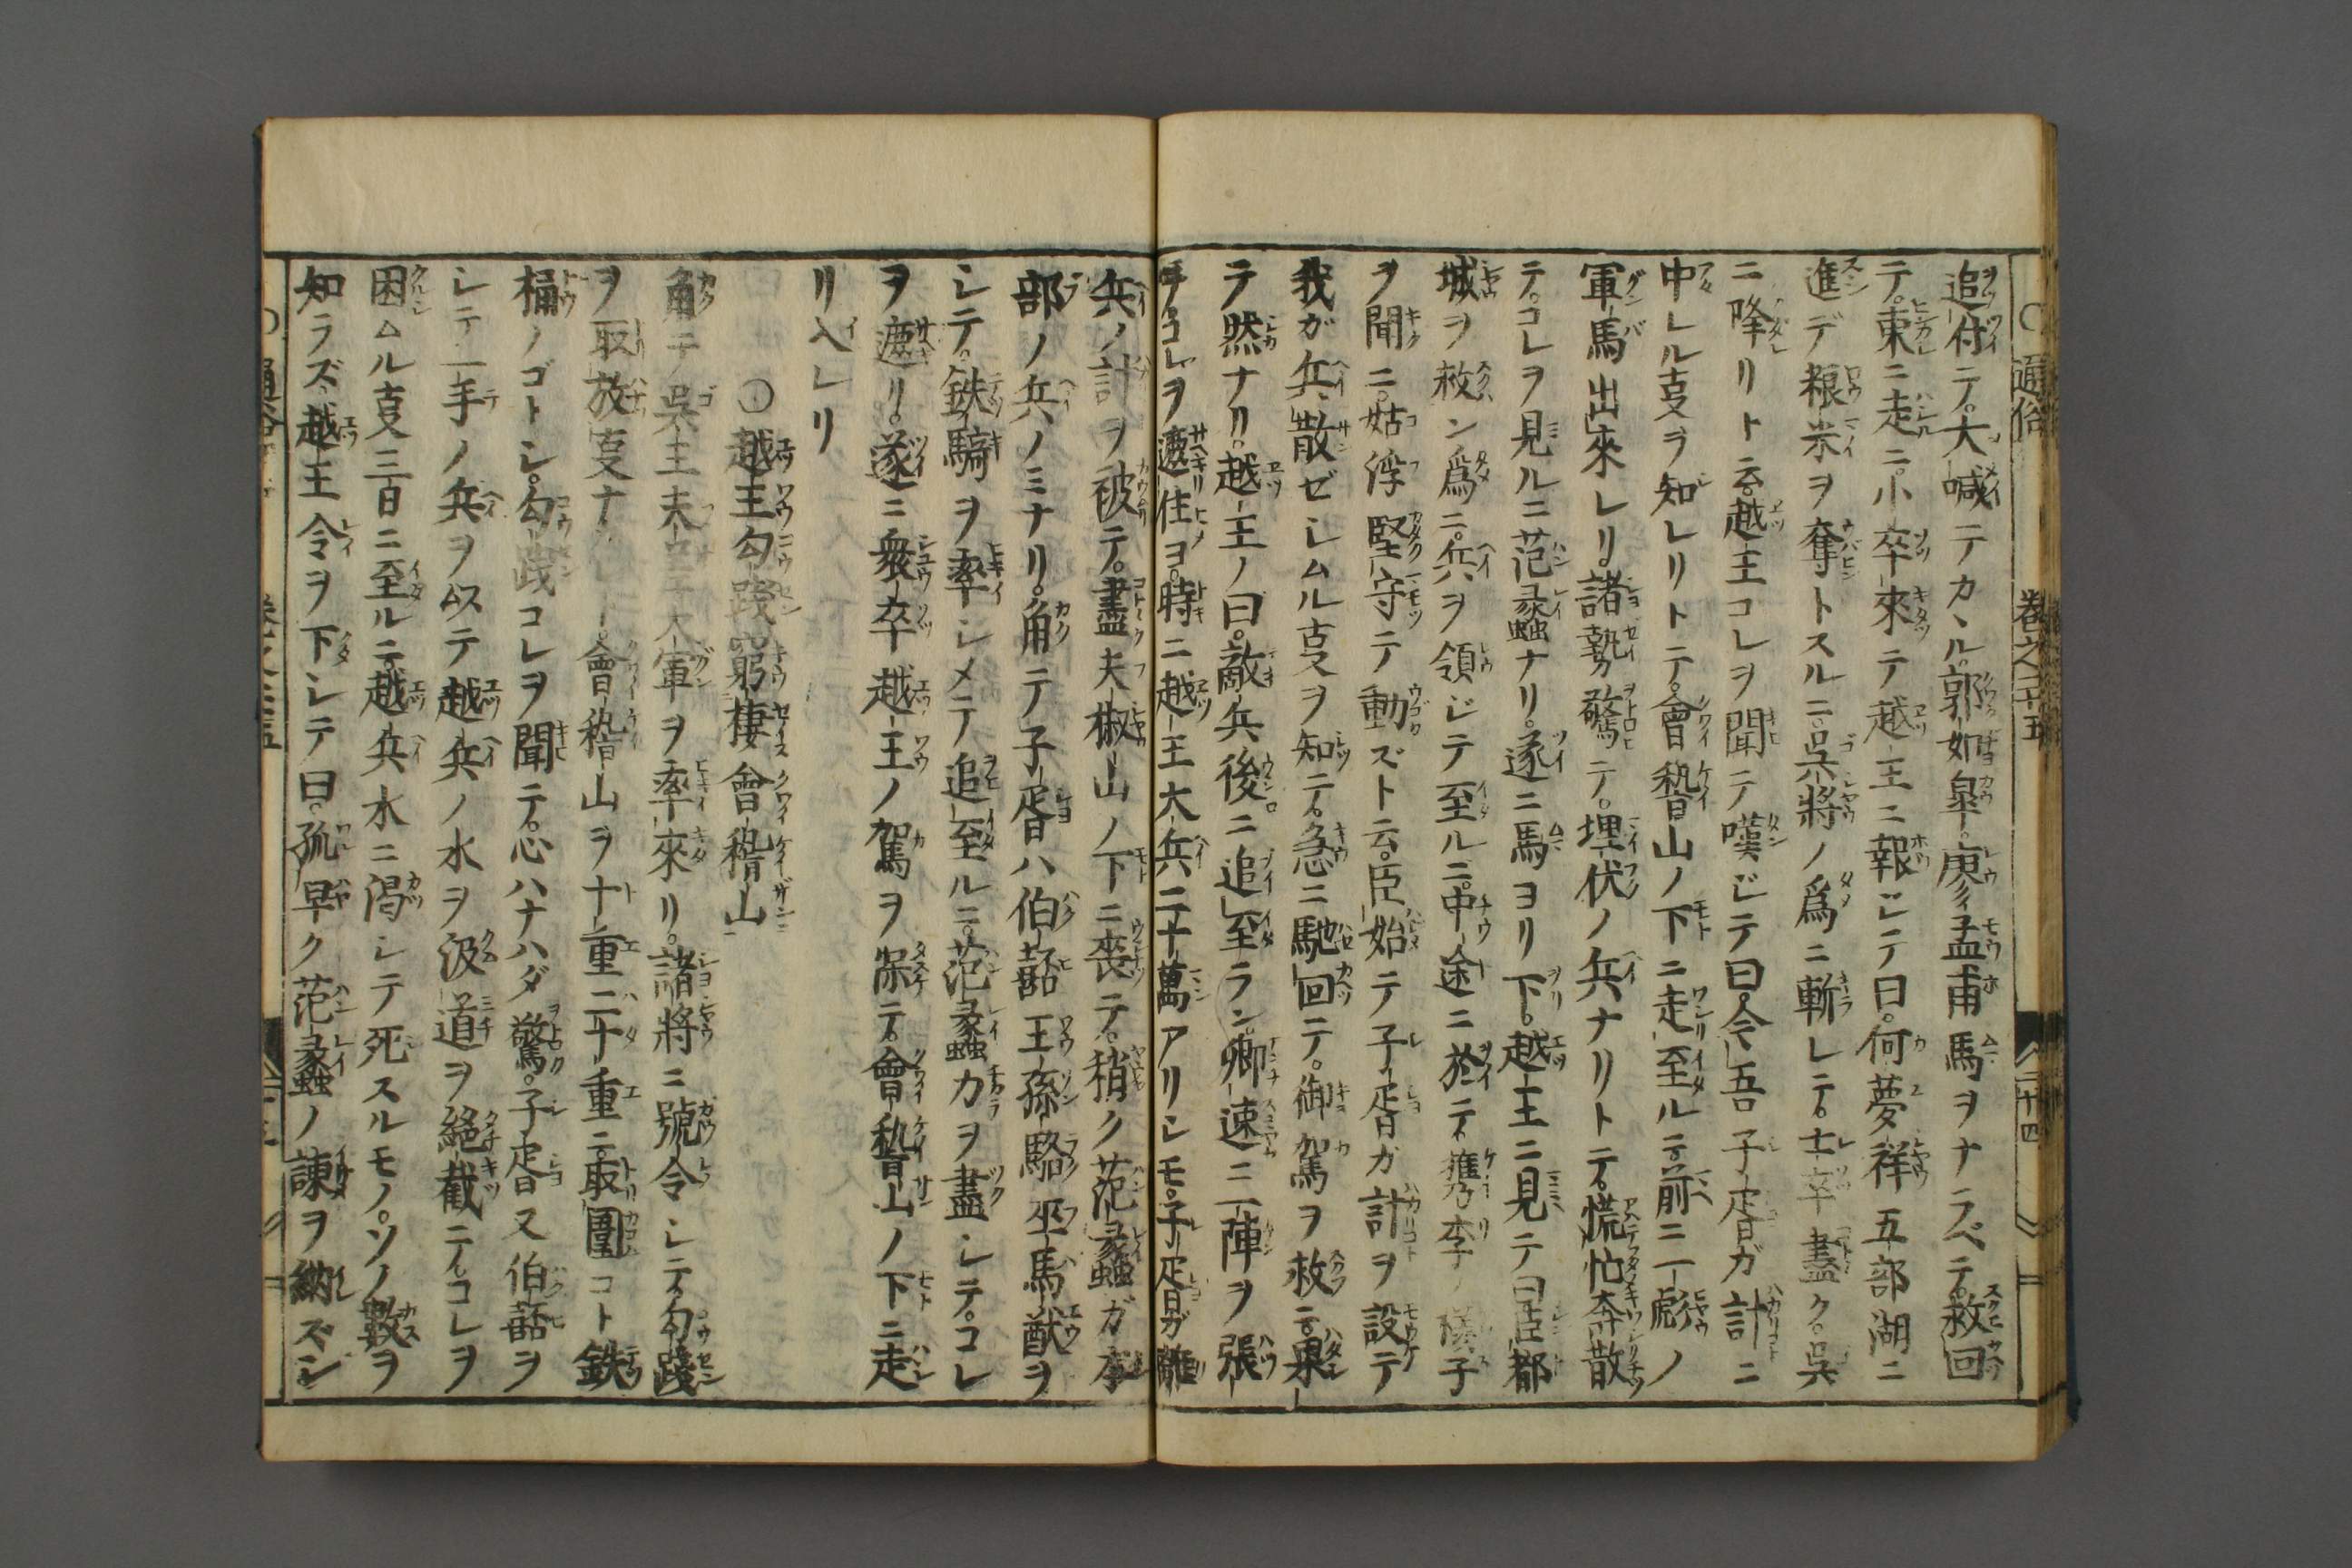 通俗 卷之十五 二十四
追付テ。大喊テカヽル。郭如皐。廖孟甫馬ヲナラベテ。救回
テ。東ニ走ニ。小卒來テ越王ニ報ジテ曰。何夢祥五部湖ニ
進デ粮米ヲ奪トスルニ。呉將ノ爲ニ斬レテ。士卒盡ク。呉
ニ降リト云。越王コレヲ聞テ嘆ジテ曰。今吾子胥ガ計ニ
中レル叓ヲ知レリトテ。會稽山ノ下ニ走至ルニ。前ニ一彪ノ
軍馬出來レリ。諸勢驚テ。埋伏ノ兵ナリトテ。慌怕奔散
テ。コレヲ見ルニ范蠡ナリ。遂ニ馬ヨリ下。越王ニ見テ曰臣都
城ヲ救ン爲ニ。兵ヲ領ジテ至ルニ。中途ニ於テ。檇李ノ樣子
ヲ聞ニ。姑浮堅守テ動ズト云。臣始テ子胥ガ計ヲ設テ
我ガ兵散ゼシムル叓ヲ知テ。急ニ馳回テ。御駕ヲ救ニ。果
テ然ナリ。越王ノ曰。敵兵後ニ追至ラン。卿速ニ一陣ヲ張
テ。コレヲ遮住ヨ。時ニ越王大兵二十萬アリシモ。子胥ガ離
兵ノ計ヲ被テ。盡夫椒山ノ下ニ喪テ。稍ク范蠡ガ本
部ノ兵ノミナリ。角テ子胥ハ伯嚭王孫駱巫馬猷ヲ
シテ。鉄騎ヲ率シメテ追至ルニ。范蠡力ヲ盡シテ。コレ
ヲ遮リ。遂ニ衆卒越王ノ駕ヲ保テ。會稽山ノ下ニ走
リ入レリ
〇越王勾踐窮棲會稽山
角テ呉王夫差大軍ヲ率來リ。諸將ニ號令シテ。勾踐
ヲ取放叓ナカレト。會稽山ヲ十重二十重ニ取圍コト鉄
桶ノゴトシ。勾踐コレヲ聞テ。心ハナハダ驚。子胥又伯嚭ヲ
シテ一手ノ兵ヲ以テ越兵ノ水ヲ汲道ヲ絕截テ。コレヲ
困ムル叓三日ニ至ルニ。越兵水ニ渴シテ死スルモノ。ソノ數ヲ
知ラズ。越王令ヲ下シテ曰。孤早ク范蠡ノ諫ヲ納ズシ
通俗